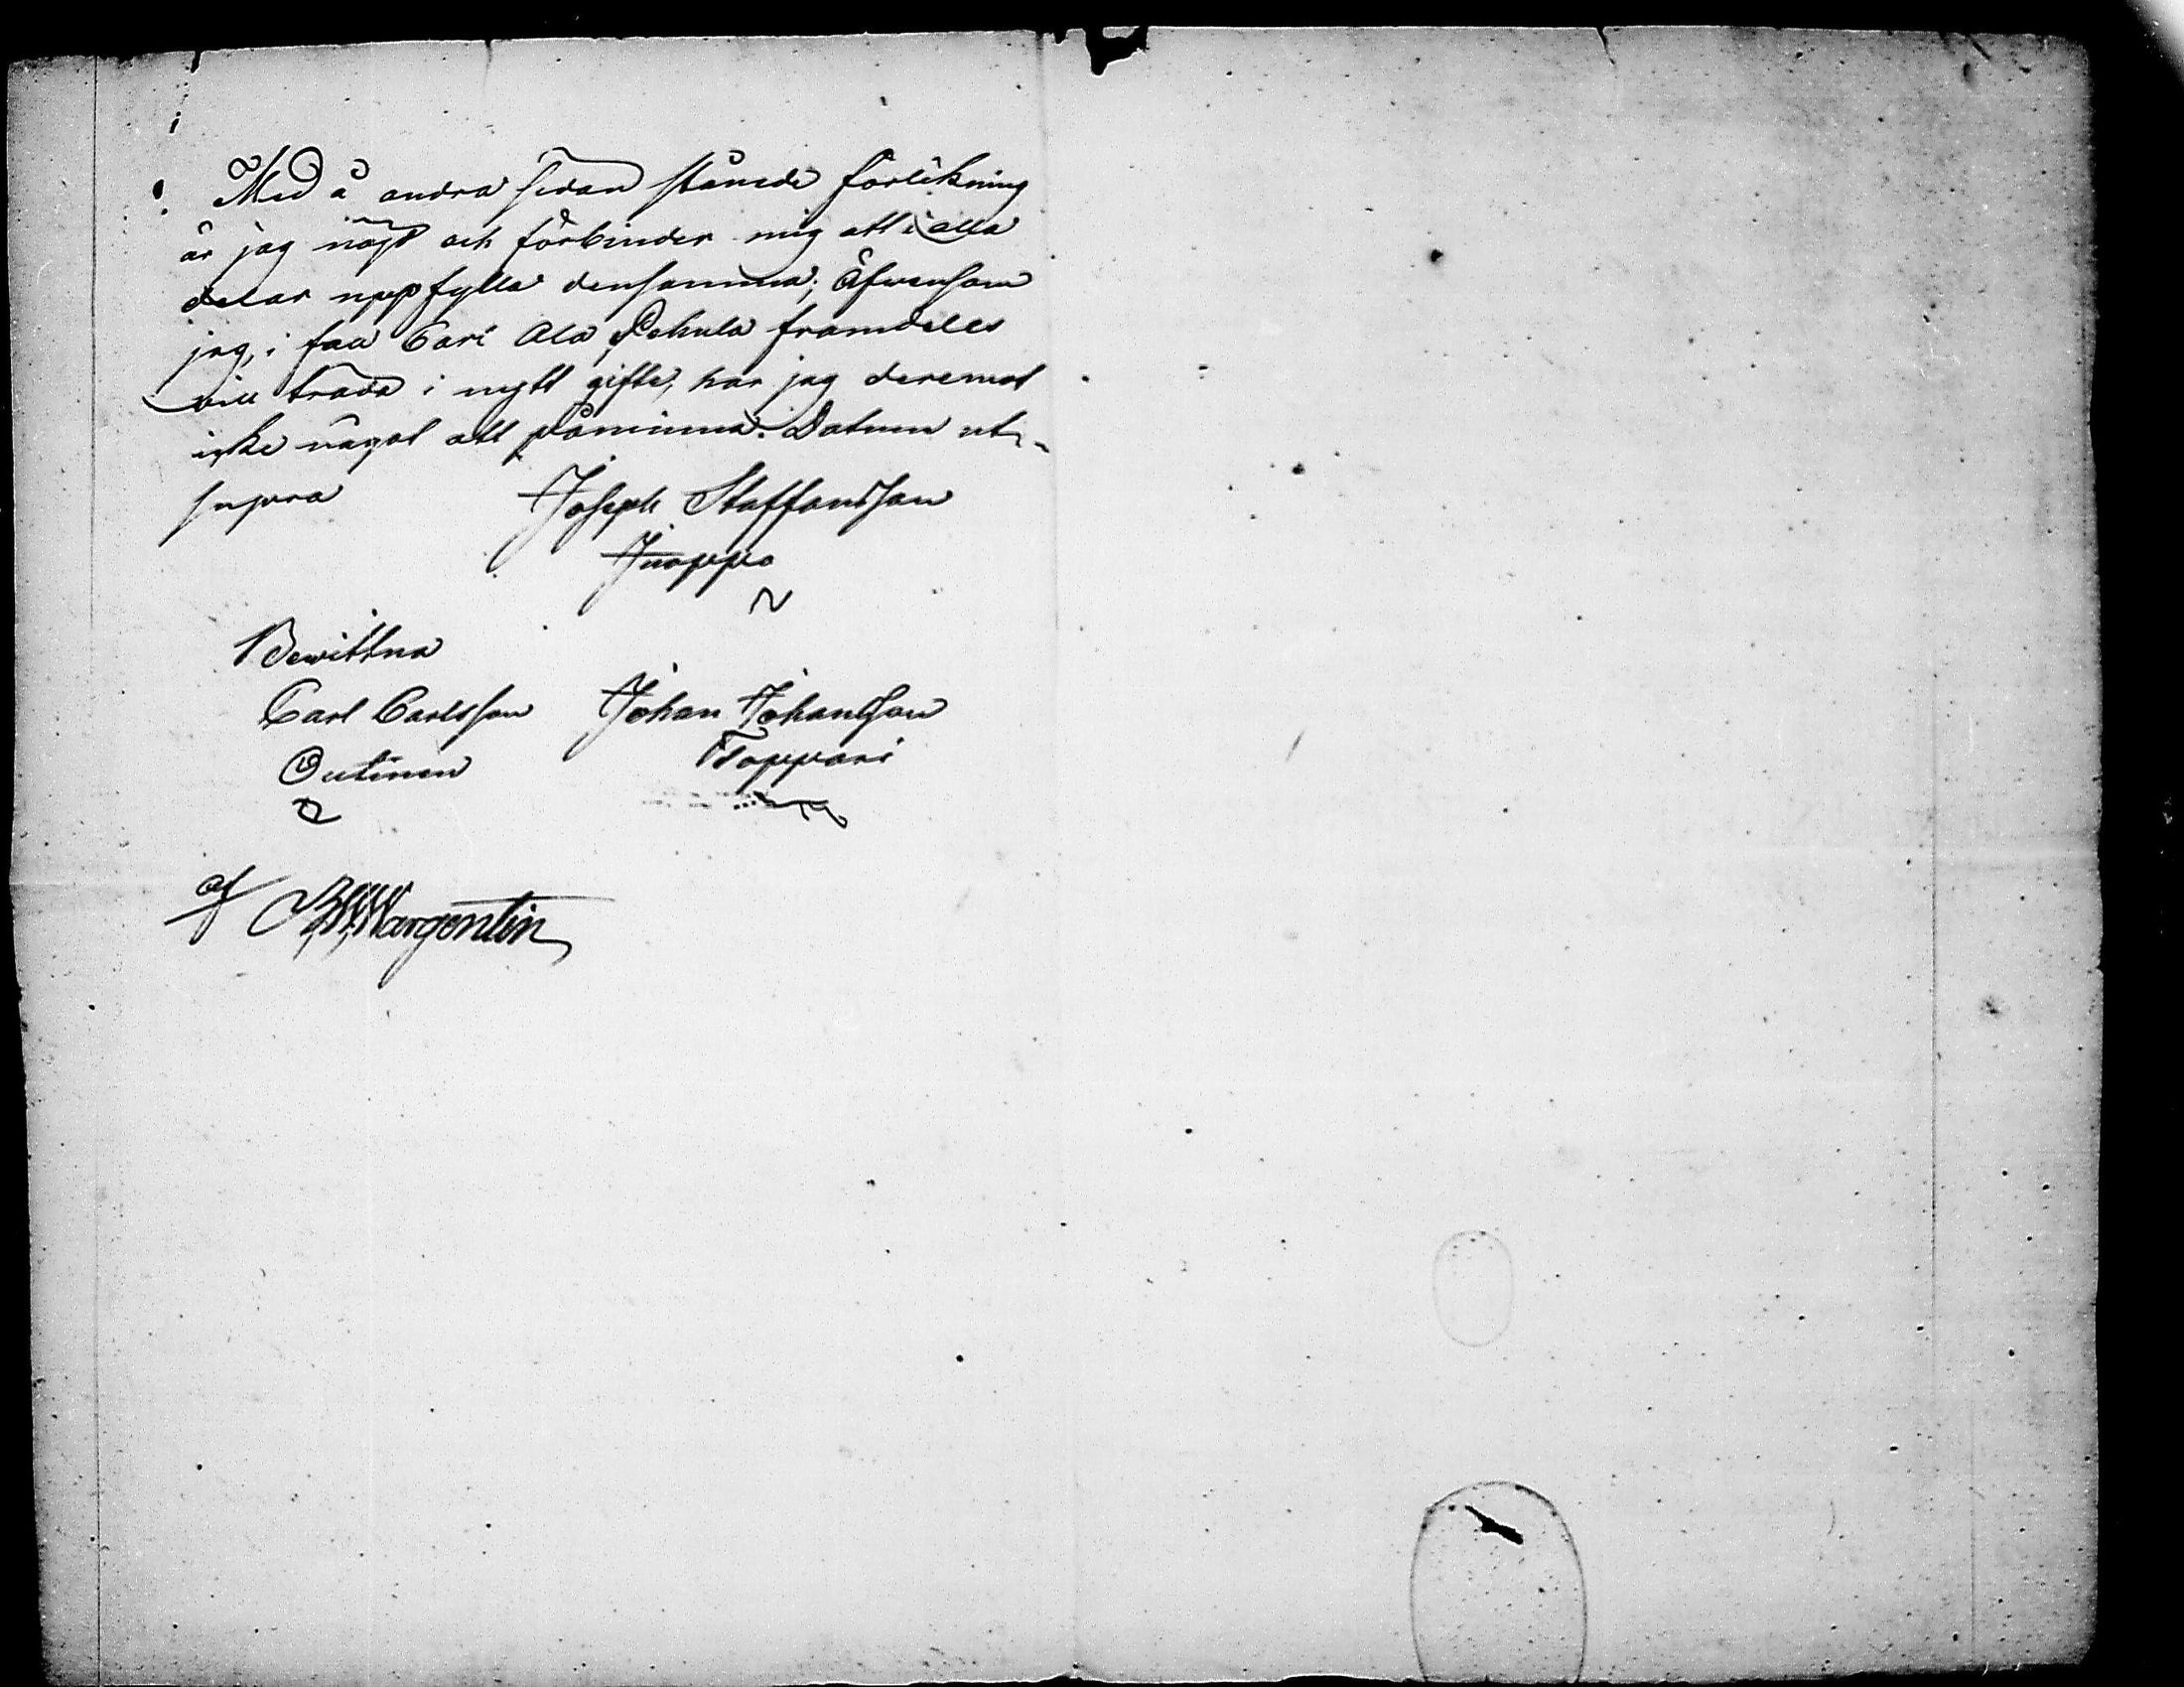 Med å andra sidan stånede förlikning
är jag nögd och förbinder mig att i alla
delar uppfylla densamma; äfwensom
jag, i fall Carl Ala Pekula framdeles
vill träda i nytt gifte, har jag deremot
icke något att påminna. Datum ut
supra
Joseph Staffansson
Juoppo
Bewittna
Carl Carlsson Johan Johansson
Outinen Toppari
af Wargentin